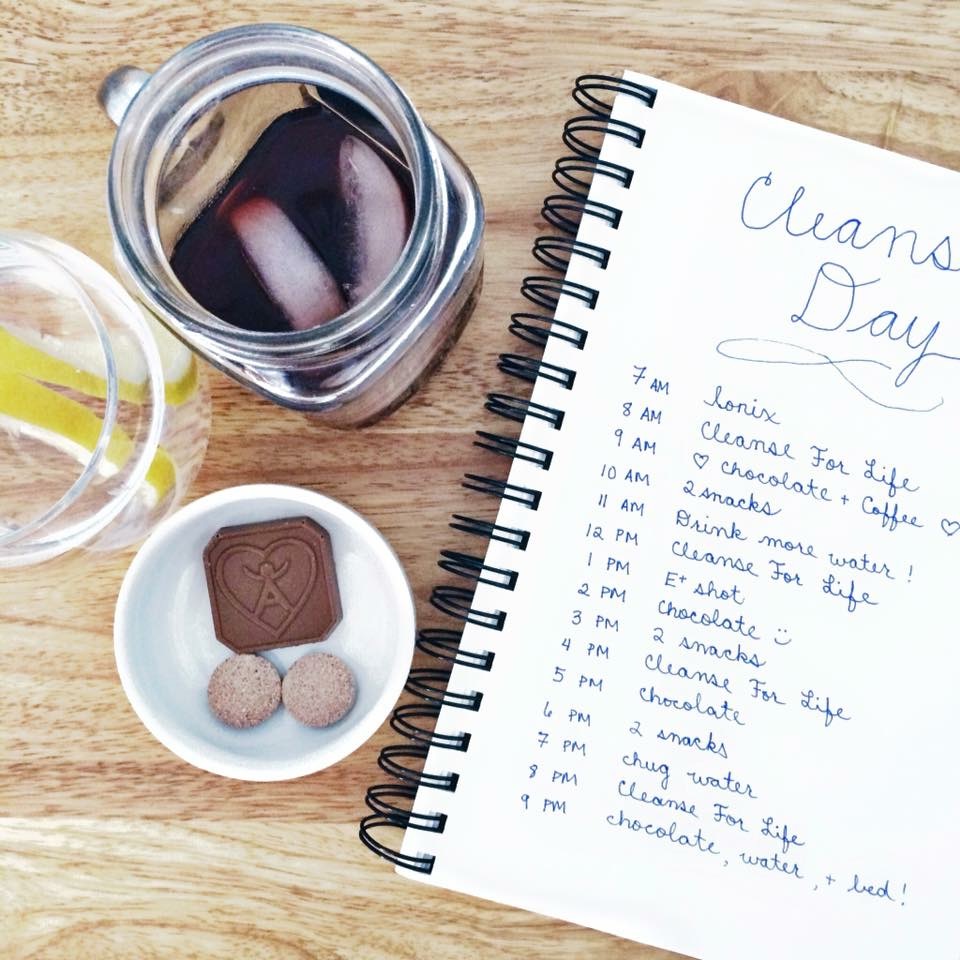 Cleans
Day
7 AM Ionix
8 AM Cleanse For Life
9 AM ♡ chocolate + Coffee ♡
10 AM 2 snacks
11 AM Drink more water!
12 PM Cleanse For Life
1 PM E+ shot
2 PM chocolate :)
3 PM 2 snacks
4 PM Cleanse For Life
5 PM chocolate
6 PM 2 snacks
7 PM chug water
8 PM Cleanse For Life
9 PM chocolate, water, + bed!
A